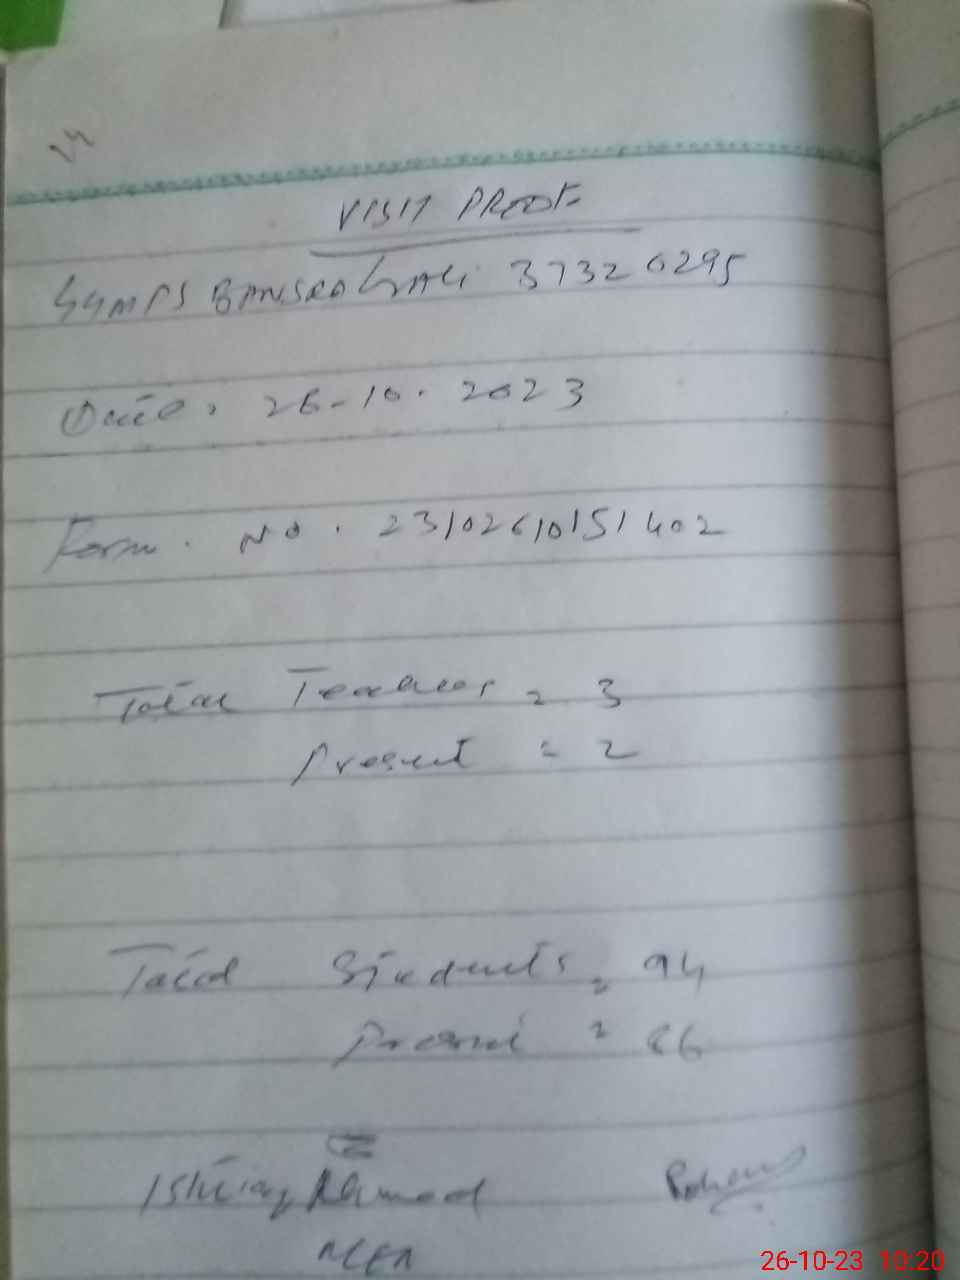 VISIT PROOF
GGMPS BANSRA GALI 37320295
Date: 26-10-2023
Form. No. 23102610151402
Total Teachers = 3
Present = 2
Total Students = 94
Present = 86
Ishtiaq Ahmad
MEA
26-10-23 10:20